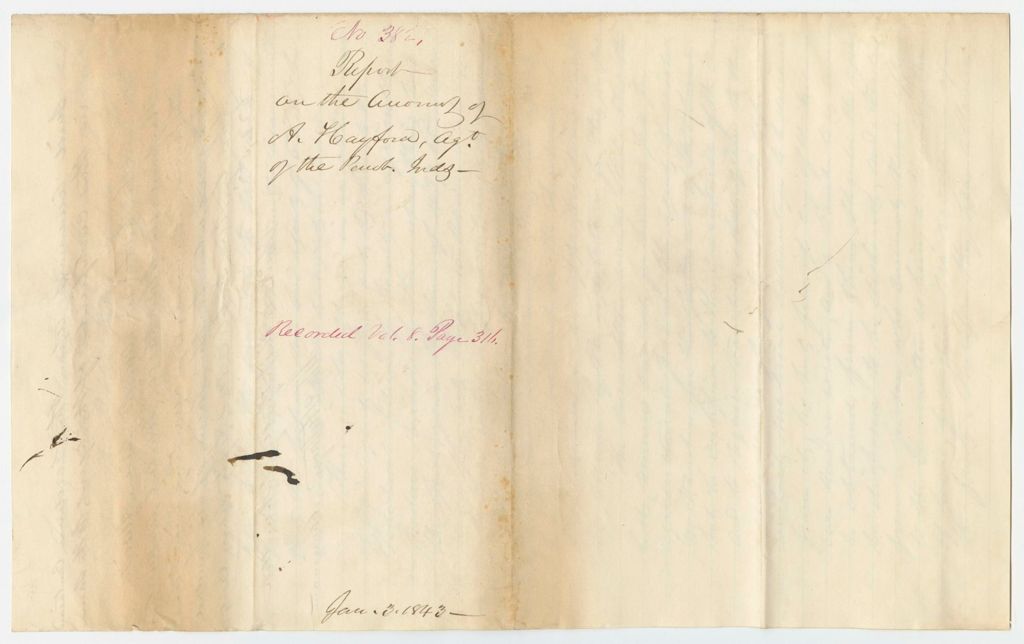 No 382,
Report
on the Account of
A. Hayford, Agt.
of the Penob. Inds —
Recorded Vol. 8. Page 316.
Jan. 3. 1843 —